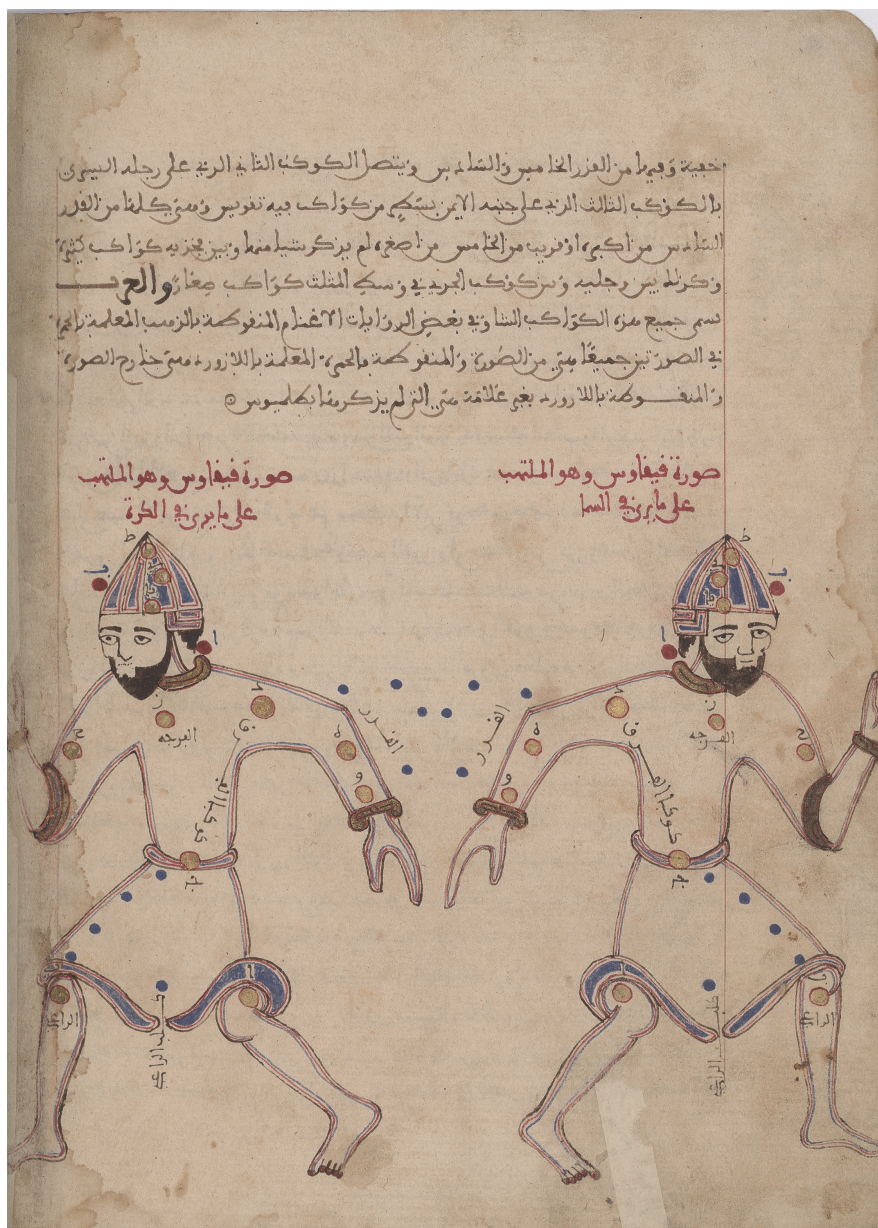 خفية وفيها من القدر الخامس والسادس ويتصل الكوكب الثاني الذي على رجله اليسرى
بالكوكب الثالث الذي على جنبه الايمن بسطر من كواكب فيه تقويس وهي كلها من القدر
السادس من اكبره او قريب من الخامس من اصغره لم يذكر شيا منها وبين فخذيه كواكب كثيرة
وكذلك بين رجليه وبين كوكب الجدي في وسط المثلث كواكب صغار والعرب
تسمي جميع هذه الكواكب الشا وفي بعض الروايات الاغنام المنقوطة بالذهب المعلمة بالحمرة
في الصورتين جميعا هي من الصورة والمنقوطة بالحمرة المعلمة باللازورد هي خارج الصورة
والمنقوطة باللازورد بغير علامة هي التي لم يذكرها بطلميوس
صورة قيقاوس وهو الملتهب
على ما يرى في السما
صورة قيقاوس وهو الملتهب
على ما يرى في الكرة
ط
ب
ا
د
ز
القرحه
ح
ه
و
القدر
كوكبا الفرق
ج
ا
كلب الراعي
الراعي
ط
ب
ا
د
ز
القرحه
ح
ه
و
القدر
كوكبا الفرق
ج
ا
كلب الراعي
الراعي